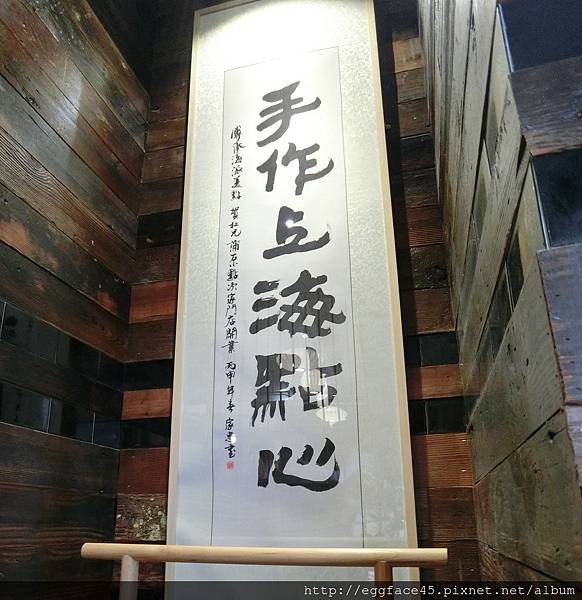 手作上海點心
傳承海派美點 賀杜兄 蒲原點水樓門店開業 丙申年春
http://eggface45.pixnet.net/album